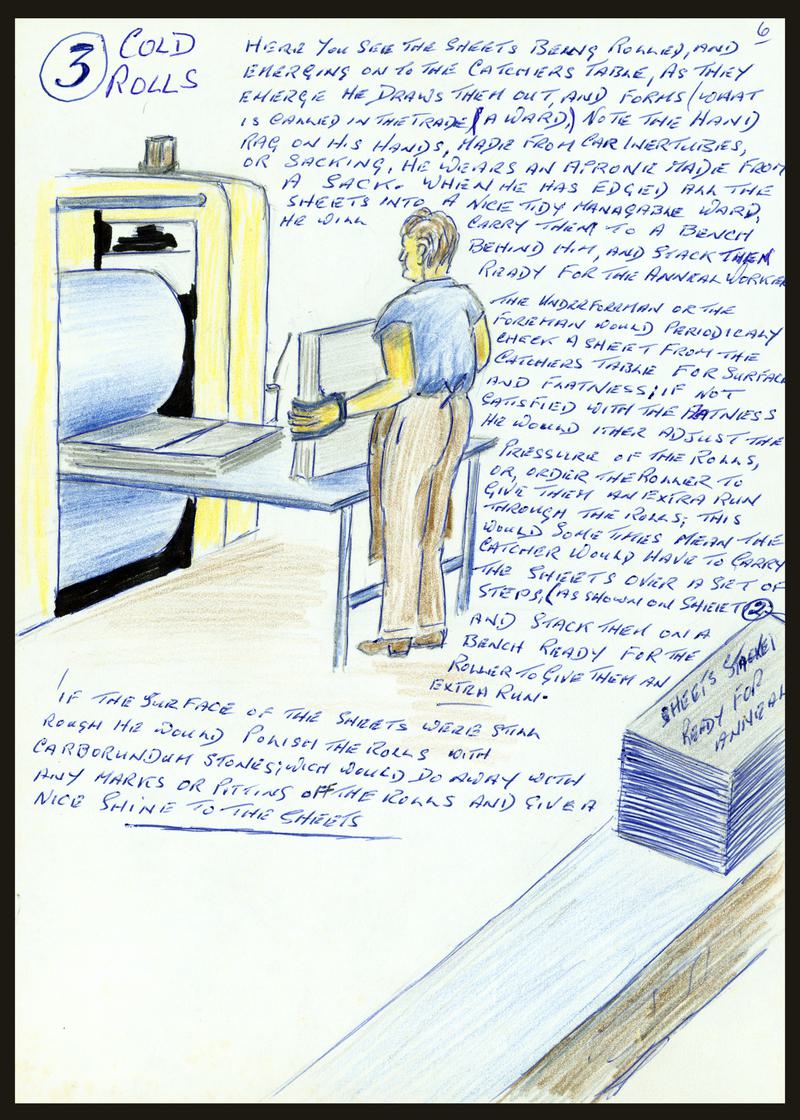 6
3 COLD
ROLLS
HERE YOU SEE THE SHEETS BEING ROLLED, AND
EMERGING ON TO THE CATCHERS TABLE, AS THEY
EMERGE HE DRAWS THEM OUT, AND FORMS (WHAT
IS CALLED IN THE TRADE (A WARD,) NOTE THE HAND
RAG ON HIS HANDS, MADE FROM CAR INERTUBES,
OR SACKING, HE WEARS AN APRONE MADE FROM
A SACK. WHEN HE HAS EDGED ALL THE
SHEETS INTO A NICE TIDY MANAGABLE WARD,
HE WILL CARRY THEM TO A BENCH
BEHIND HIM, AND STACK THEM
READY FOR THE ANNEAL WORKER
THE UNDERFOREMAN OR THE
FOREMAN WOULD PERIODICALY
CHECK A SHEET FROM THE
CATCHERS TABLE FOR SURFACE
AND FLATNESS; IF NOT
SATISFIED WITH THE FLATNESS
HE WOULD ITHER ADJUST THE
PRESSURE OF THE ROLLS,
OR, ORDER THE ROLLER TO
GIVE THEM AN EXTRA RUN
THROUGH THE ROLLS; THIS
WOULD SOMETIMES MEAN THE
CATCHER WOULD HAVE TO CARRY
THE SHEETS OVER A SET OF
STEPS, (AS SHOWN ON SHEET 2
AND STACK THEM ON A
BENCH READY FOR THE
ROLLER TO GIVE THEM AN
EXTRA RUN.
IF THE SURFACE OF THE SHEETS WERE STILL
ROUGH HE WOULD POLISH THE ROLLS WITH
CARBORUNDUM STONES; WICH WOULD DO AWAY WITH
ANY MARKS OR PITTING OFF THE ROLLS AND GIVE A
NICE SHINE TO THE SHEETS
SHEETS STACKET
READY FOR
ANNEAL